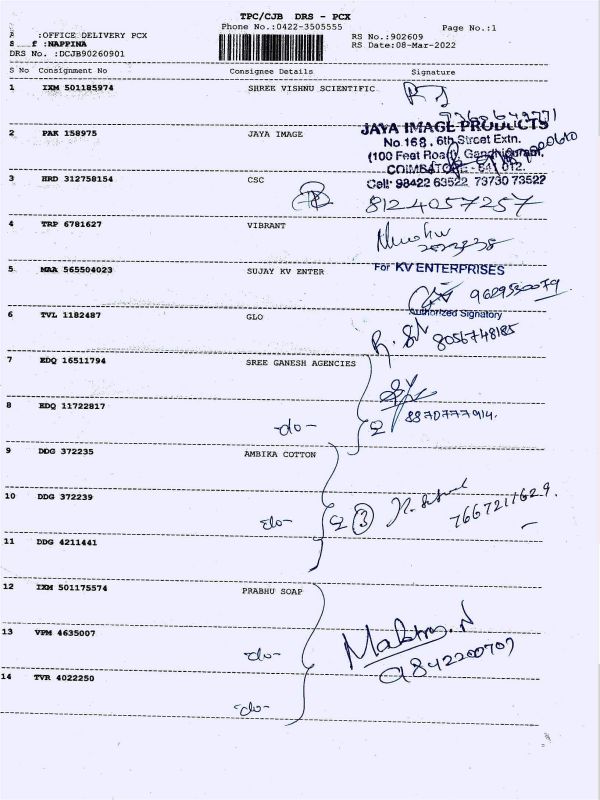 TPC/CJB DRS - PCX
Phone No.:0422-3505555 Page No.:1
:OFFICE DELIVERY PCX RS No.:902609
S f :NAPPINA RS Date:08-Mar-2022
DRS No. :DCJB90260901
S No Consignment No Consignee Details Signature
1 IXM 501185974 SHREE VISHNU SCIENTIFIC
2 PAK 158975 JAYA IMAGE
JAYA IMAGE PRODUCTS
No.168, 6th Street Extn.
(100 Feet Road), Gandhipuram,
COIMBATORE - 641 012.
Cell: 98422 63522 73730 73522
3 HRD 312758154 CSC
8124057257
4 TRP 6781627 VIBRANT
5 MAA 565504023 SUJAY KV ENTER
For KV ENTERPRISES
Authorized Signatory
6 TVL 1182487 GLO
8056748185
7 EDQ 16511794 SREE GANESH AGENCIES
8 EDQ 11722817 -do-
8870777914.
9 DDG 372235 AMBIKA COTTON
10 DDG 372239 -do- 3
7667217629.
11 DDG 4211441
12 IXM 501175574 PRABHU SOAP
13 VPM 4635007 -do-
9842200707
14 TVR 4022250 -do-